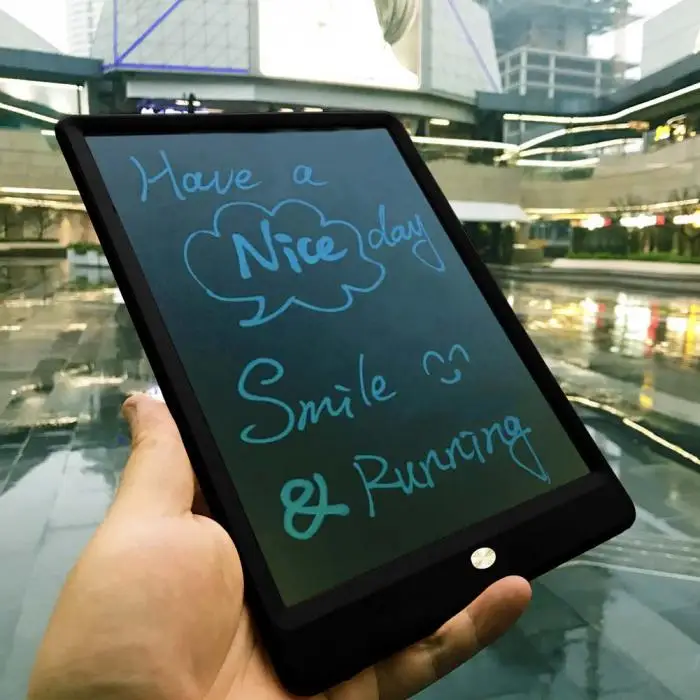 Have a
Nice day
Smile
& Running